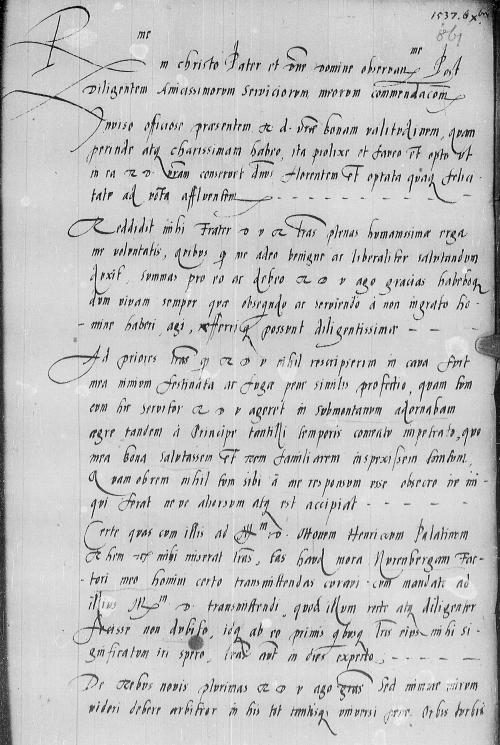 1537. 6 Xbris
861
Rme in christo Pater et Dne domine observanme Post
diligentem Amicissimorum Serviciorum meorum commendacom
Inviso officiose praesentem R d. vrae bonam valitudinem, quam
perinde atq charissimam habeo, ita prolixe et faveo et opto ut
in ea R d vram conservet dnus florentem et optata quaq felici-
tate ad vota affluentem
Reddidit mihi frater d v R lras plenas humanissimae erga
me voluntatis, quibus q me adeo benigne ac liberaliter salutandum
duxit, summas pro eo ac debeo R d v ago gracias habeboq
dum vivam semper quae obsequdo ac serviendo a non ingrato ho-
mine haberi, agi, referriq possunt diligentissimae
Ad priores lras q R d v nihil rescripserim in causa fuit
mea nimium festinata ac fugae pene similis profectio, quam cum
cum hic servitor R d v ageret in submontanum adornabam
aegre tandem a Principe tantilli temporis comeatu impetrato, quo
mea bona salutassem et rem familiarem inspexissem
Quamobrem nihil sibi a me responsum esse obsecro ne ini-
qui ferat neve aliorsum atq est accipiat
Certe quas cum illis ad Illm d. Ottonem Henricum Palatinum
Rhem mihi miserat lras, eas haud mora Nurenbergam Fac-
tori meo homini certo transmittendas curavi cum mandato ad
illius Illm d transmittendi, quod illum recte atq diligenter
fecisse non dubito, idq ab eo primis quibusq lris eius mihi si-
gnificatum iri spero, lras aut in dies expecto
De Rebus novis plurimas R d v ago gras Sed minime mirum
videri debere arbitror in his tot tantisq universi pene Orbis turbis